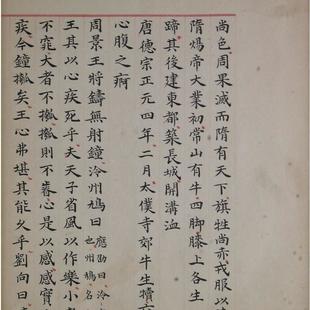 尚色周果滅而隋有天下旗牲尚赤戎服以
隋煬帝大業初常山有牛四脚膝上各生
蹄其後建東都築長城開溝洫
唐德宗正元四年二月太僕寺郊牛生犢
心腹之痾
周景王將鑄無射鐘泠州鳩曰應劭曰泠
也州鳩名
王其以心疾死乎夫天子省風以作樂小
不窕大者不摦摦則不容心是以感感實
疾今鐘摦矣王心弗堪其能久乎劉向曰